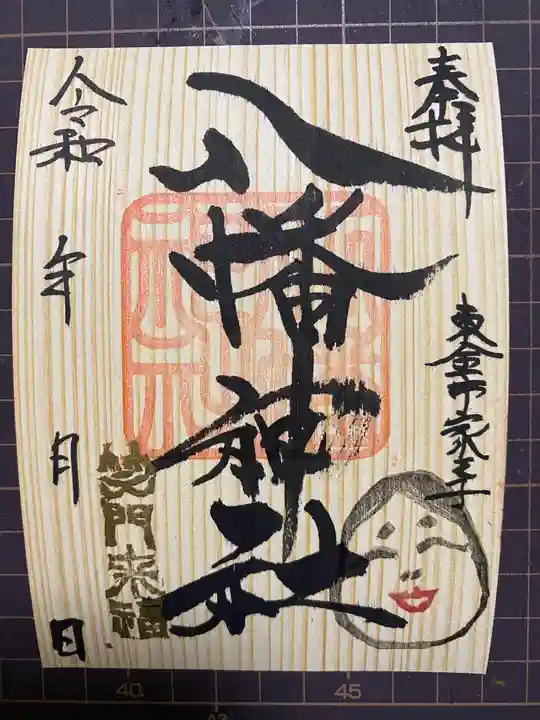 奉拝
東金市家之子
八幡神社
笑門来福
令和 年 月 日
40
45